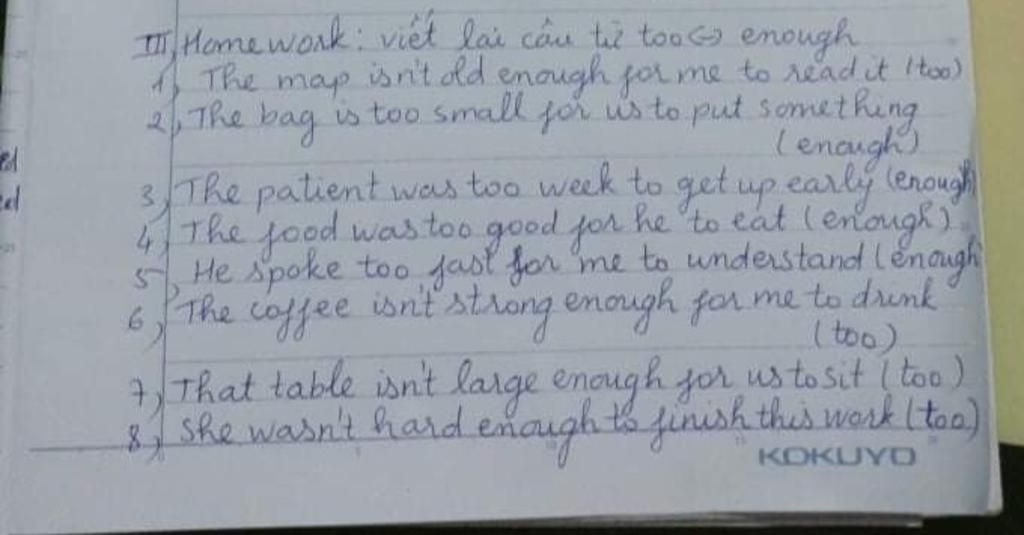 III, Homework: viết lại câu từ too <-> enough
1, The map isn't old enough for me to read it (too)
2, The bag is too small for us to put something
(enough)
3, The patient was too week to get up early (enough)
4, The food was too good for he to eat (enough)
5, He spoke too fast for me to understand (enough
6, The coffee isn't strong enough for me to drink
(too)
7, That table isn't large enough for us to sit (too)
8, She wasn't hard enough to finish this work (too)
KOKUYO